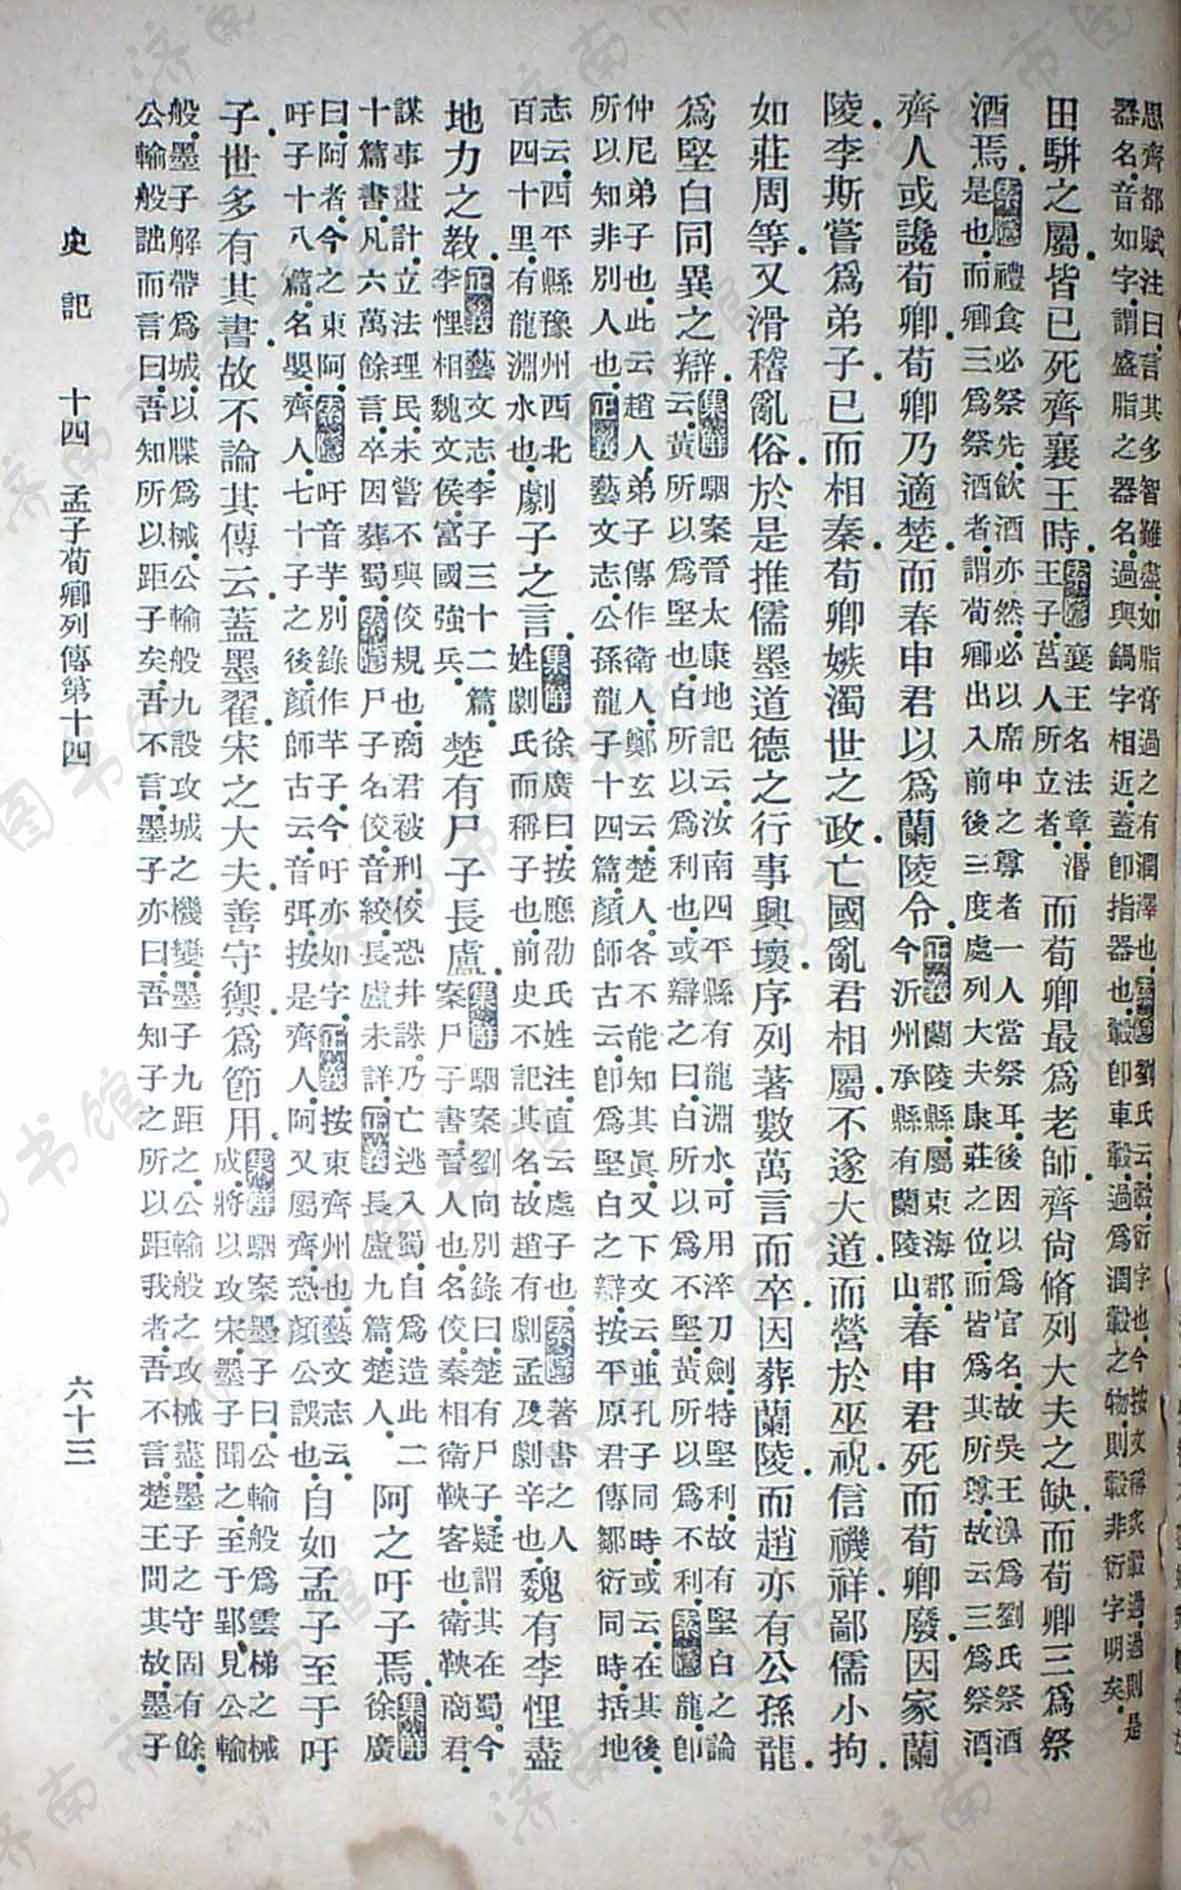 思齊都賦注曰。言其多智難盡。如脂膏過之有潤澤也。索隱劉氏云。轂衍字也。今按文稱炙轂過。過則是
器名。音如字。謂盛脂之器名。過與鍋字相近。蓋卽指器也。轂卽車轂。過爲潤轂之物。則轂非衍字明矣。
田騈之屬。皆已死齊襄王時。索隱襄王名法章。湣王子。莒人所立者。而荀卿最爲老師。齊尙脩列大夫之缺。而荀卿三爲祭
酒焉。索隱禮食必祭先。飲酒亦然。必以席中之尊者一人當祭耳。後因以爲官名。故吳王濞爲劉氏祭酒
是也。而卿三爲祭酒者。謂荀卿出入前後三度處列大夫康莊之位。而皆爲其所尊。故云三爲祭酒。
齊人或讒荀卿。荀卿乃適楚。而春申君以爲蘭陵令。正義蘭陵縣。屬東海郡。今沂州承縣有蘭陵山。春申君死而荀卿廢。因家蘭
陵。李斯嘗爲弟子。已而相秦。荀卿嫉濁世之政。亡國亂君相屬。不遂大道。而營於巫祝。信禨祥。鄙儒小拘。
如莊周等。又滑稽亂俗。於是推儒墨道德之行事興壞。序列著數萬言而卒。因葬蘭陵。而趙亦有公孫龍。
爲堅白同異之辯。集解駰案晉太康地記云。汝南四平縣有龍淵水。可用淬刀劍。特堅利。故有堅白之論
云。黃所以爲堅也。白所以爲利也。或辯之曰。白所以爲不堅。黃所以爲不利。索隱龍卽
仲尼弟子也。此云趙人。弟子傳作衛人。鄭玄云。楚人。各不能知其眞。又下文云。並孔子同時。或云。在其後。
所以知非別人也。正義藝文志。公孫龍子十四篇。顏師古云。卽爲堅白之辯。按平原君傳鄒衍同時。括地
志云。西平縣豫州西北
百四十里。有龍淵水也。劇子之言。集解徐廣曰。按應劭氏姓注。直云處子也。索隱著書之人
姓劇氏而稱子也。前史不記其名。故趙有劇孟及劇辛也。魏有李悝盡
地力之教。正義藝文志。李子三十二篇。
李悝相魏文侯。富國強兵。楚有尸子長盧。集解駰案劉向別錄曰。楚有尸子。疑謂其在蜀。今
案尸子書。晉人也。名佼。秦相衛鞅客也。衛鞅商君
謀事畫計。立法理民。未嘗不與佼規也。商君被刑。佼恐并誅。乃亡逃入蜀。自爲造此二
十篇書。凡六萬餘言。卒因葬蜀。索隱尸子名佼。音絞。長盧未詳。正義長盧九篇。楚人。阿之吁子焉。集解徐廣
曰。阿者。今之東阿。索隱吁音芋。別錄作芋子。今吁亦如字。正義按東齊州也。藝文志云。
吁子十八篇。名嬰。齊人。七十子之後。顏師古云。音弭。按是齊人。阿又屬齊。恐顏公誤也。自如孟子至于吁
子。世多有其書。故不論其傳云。蓋墨翟宋之大夫。善守禦。爲節用。集解駰案墨子曰。公輸般爲雲梯之械
成。將以攻宋。墨子聞之。至于郢。見公輸
般。墨子解帶爲城。以牒爲械。公輸般九設攻城之機變。墨子九距之。公輸般之攻械盡。墨子之守固有餘。
公輸般詘而言曰。吾知所以距子矣。吾不言。墨子亦曰。吾知子之所以距我者。吾不言。楚王問其故。墨子
史記 十四 孟子荀卿列傳第十四 六十三